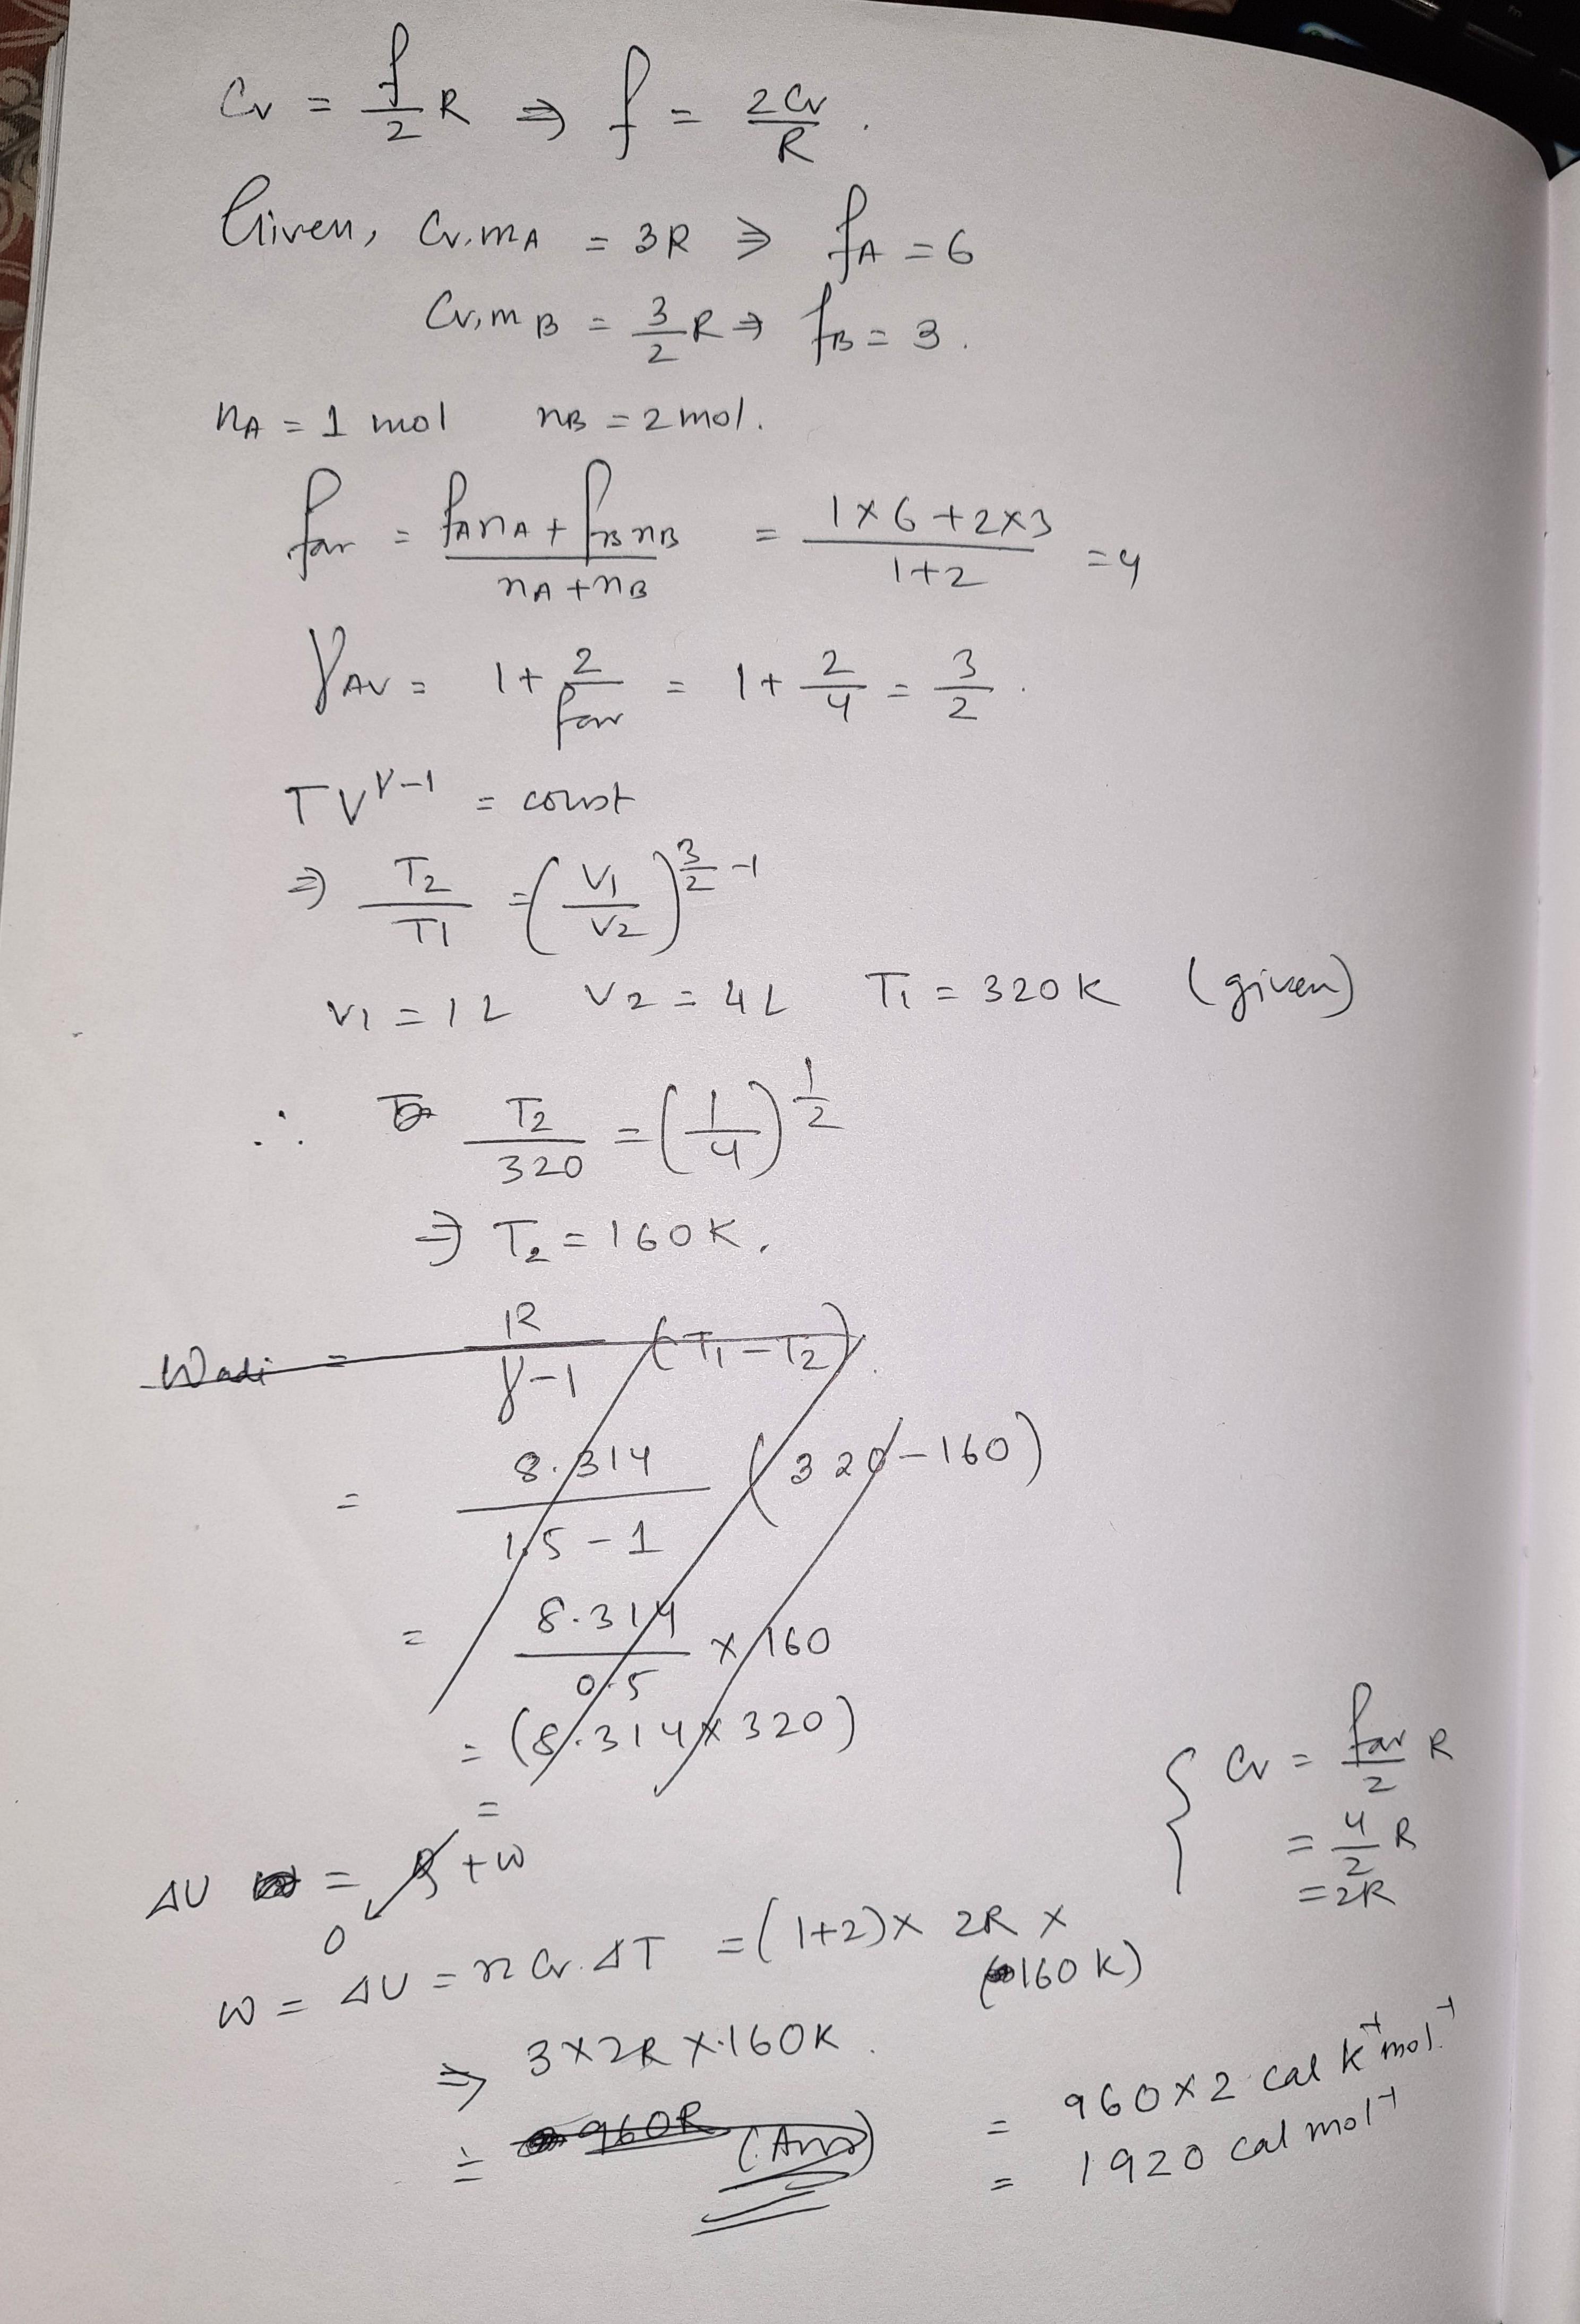 Cv = f/2 R ⇒ f = 2Cv/R .
Given, Cv,mA = 3R ⇒ fA = 6
Cv,m B = 3/2 R ⇒ fB = 3 .
nA = 1 mol nB = 2 mol.
fav = fAnA + fBnB / nA + nB = 1×6 + 2×3 / 1+2 = 4
γAV = 1 + 2/fav = 1 + 2/4 = 3/2 .
TV^γ-1 = const
⇒ T2/T1 = (V1/V2)^3/2 -1
V1 = 1 L V2 = 4 L T1 = 320 K (given)
∴ T2/320 = (1/4)^1/2
⇒ T2 = 160 K.
Wadi = R/γ-1 (T1-T2).
= 8.314/1.5-1 (320-160)
= 8.314/0.5 × 160
= (8.314×320)
=
{ Cv = fav/2 R
= 4/2 R
= 2R
ΔU = q + w
0
w = ΔU = nCv.ΔT = (1+2)× 2R ×
(160 K)
⇒ 3×2R × 160 K .
= 960R (Ans)
= 960×2 cal K^-1 mol^-1
= 1920 cal mol^-1